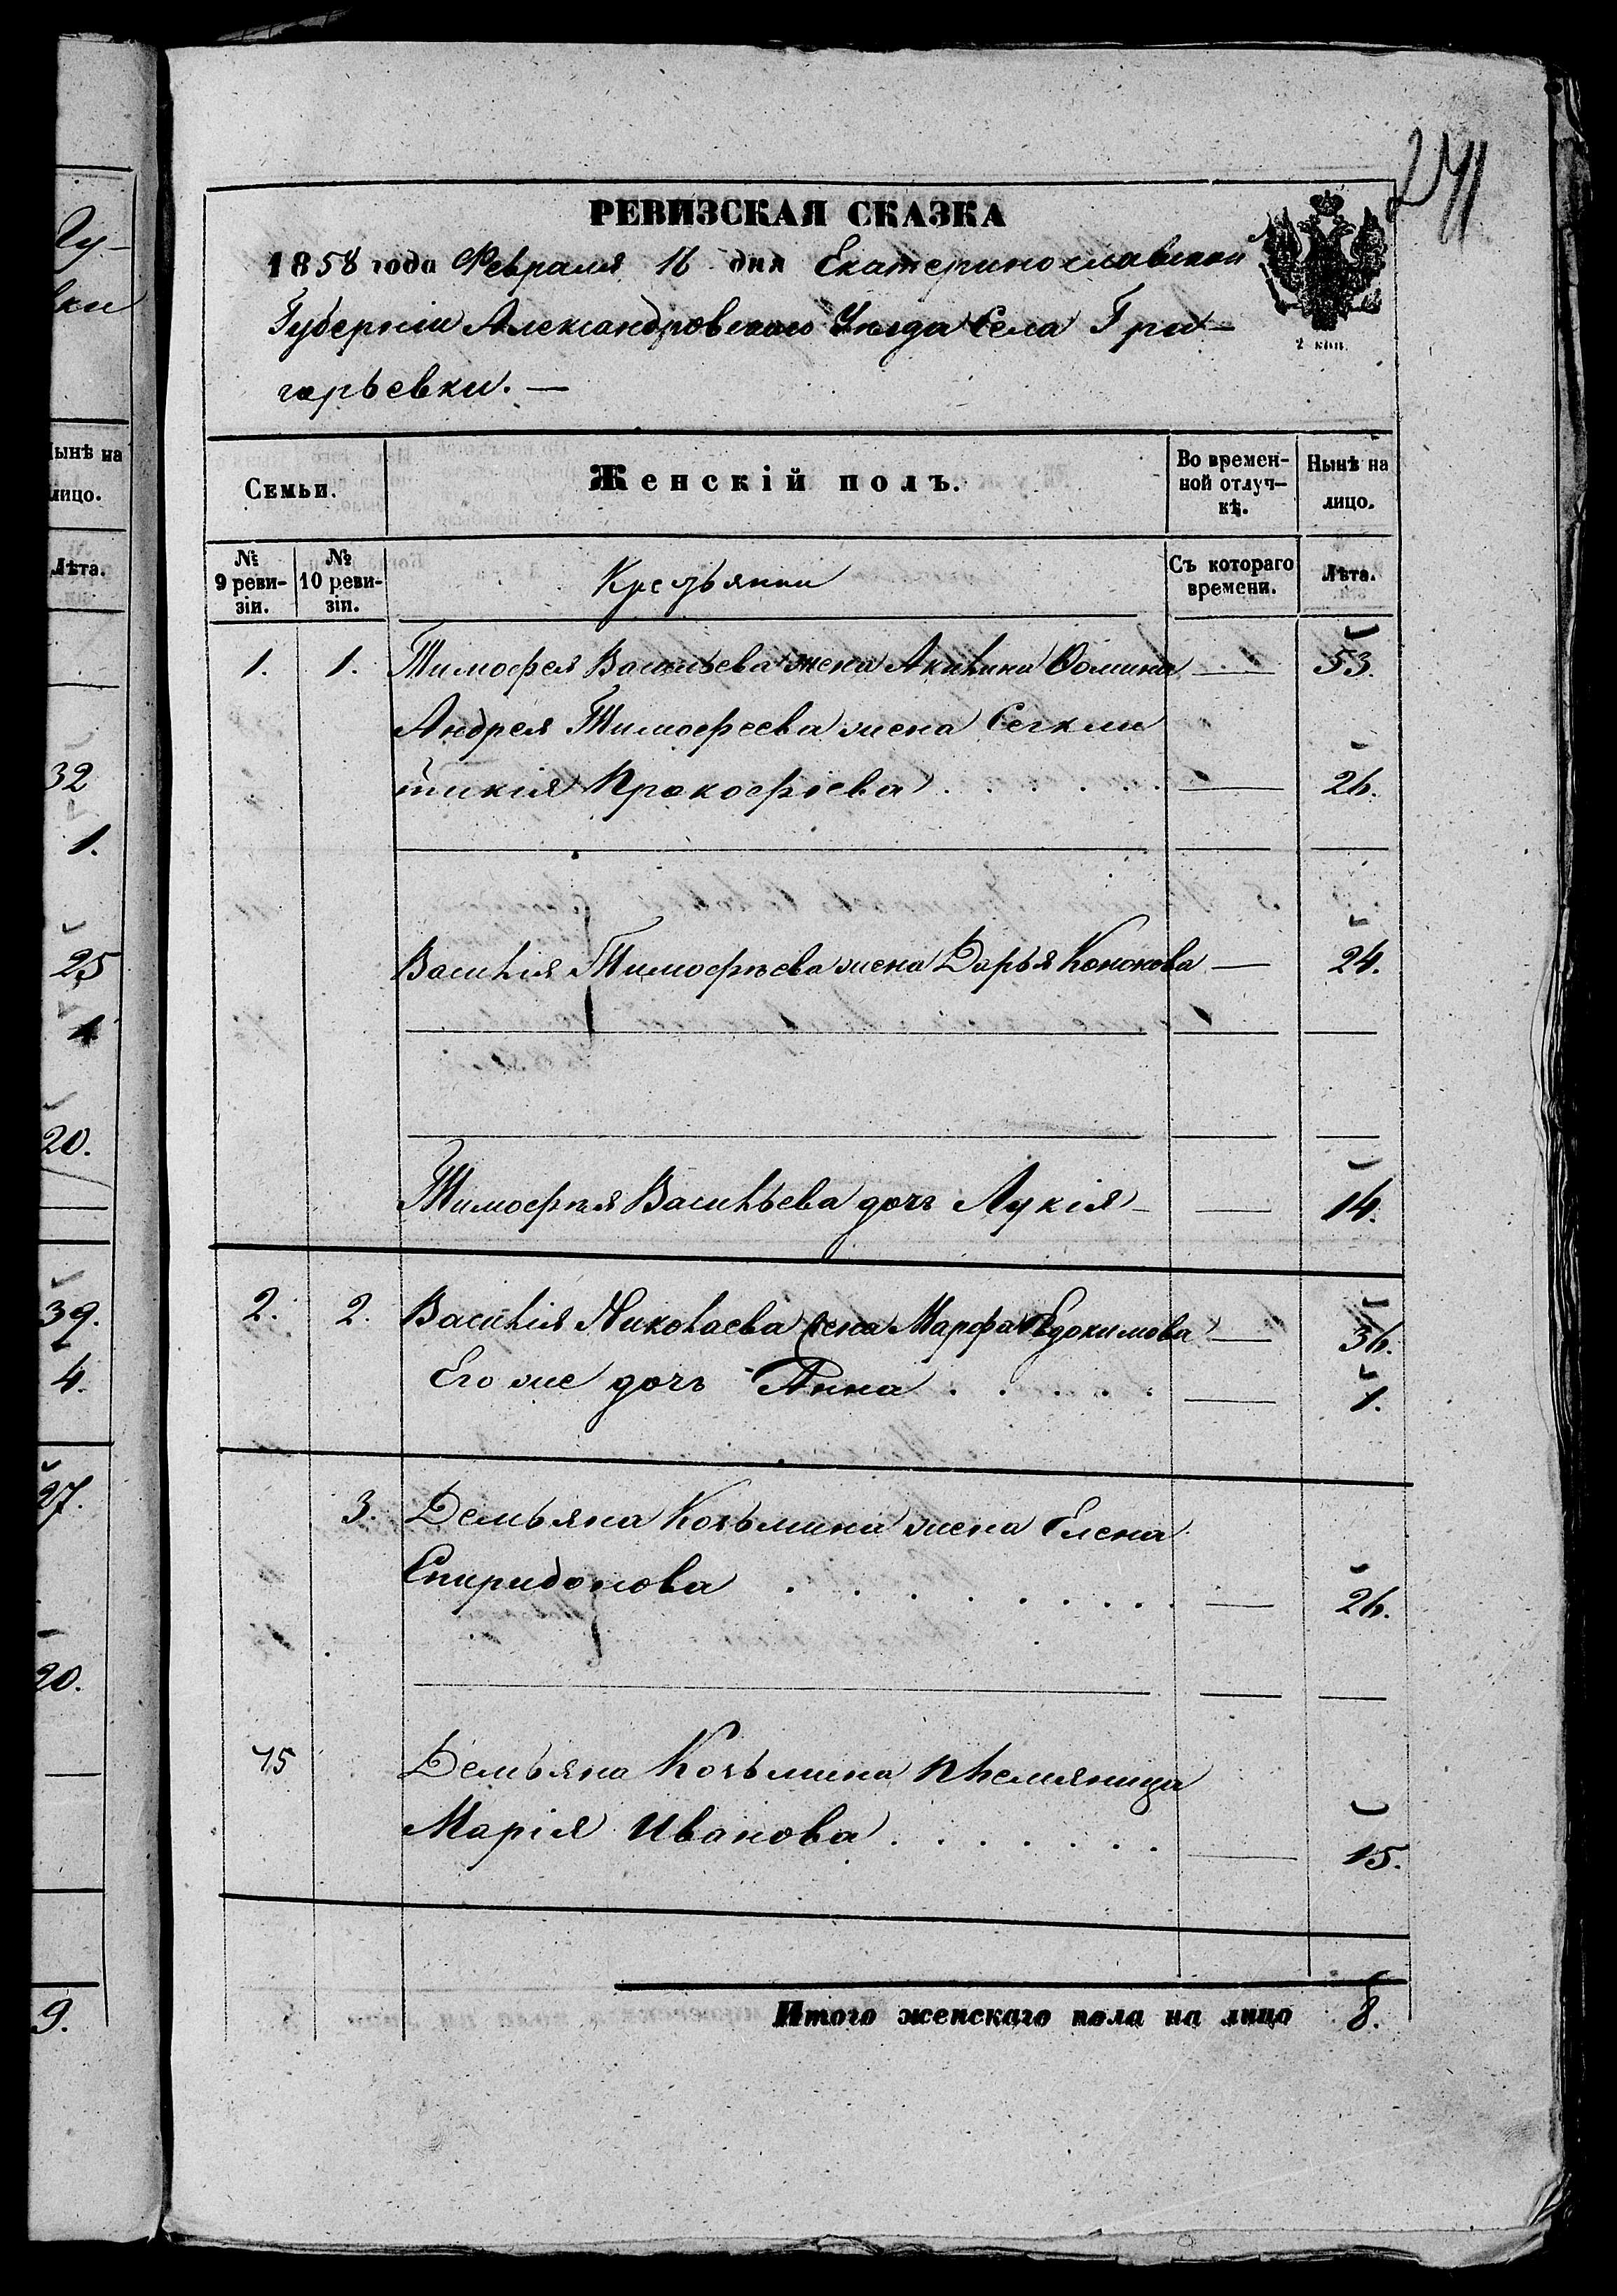 Гу-
вки
Нынѣ на
лицо.
Лѣта.
32
1.
25
1
20.
39.
4.
27.
20.
9.
241
РЕВИЗСКАЯ СКАЗКА
1858 года Февраля 16 дня Екатеринославской
Губерніи Александровскаго Уѣзда Села Гри-
горьевки. —
2 коп.
Семьи. Женскій полъ. Во времен-ной отлуч-кѣ. Нынѣ на лицо.
№ 9 реви-зіи. № 10 реви-зіи. Крестьянки Съ котораго времени. Лѣта.
1. 1. Тимофея Васильева жена Акилина Фомина — 53.
Андрея Тимофеева жена
Прокофіева . . . . . — 26.
Василія Тимофѣева жена Дарья Кононова — 24.
Тимофѣя Васильева дочь Лукія — — 14.
2. 2. Василія Николаева жена Марфа Евдокимова — 36.
Его же дочь Анна . . . . . — 1.
3. Демьяна Козьмина жена Елена
Спиридонова . . . . . . . . — 26.
75 Демьяна Козьмина племяница
Марія Иванова . . . . . . — 15.
Итого женскаго пола на лицо 8.